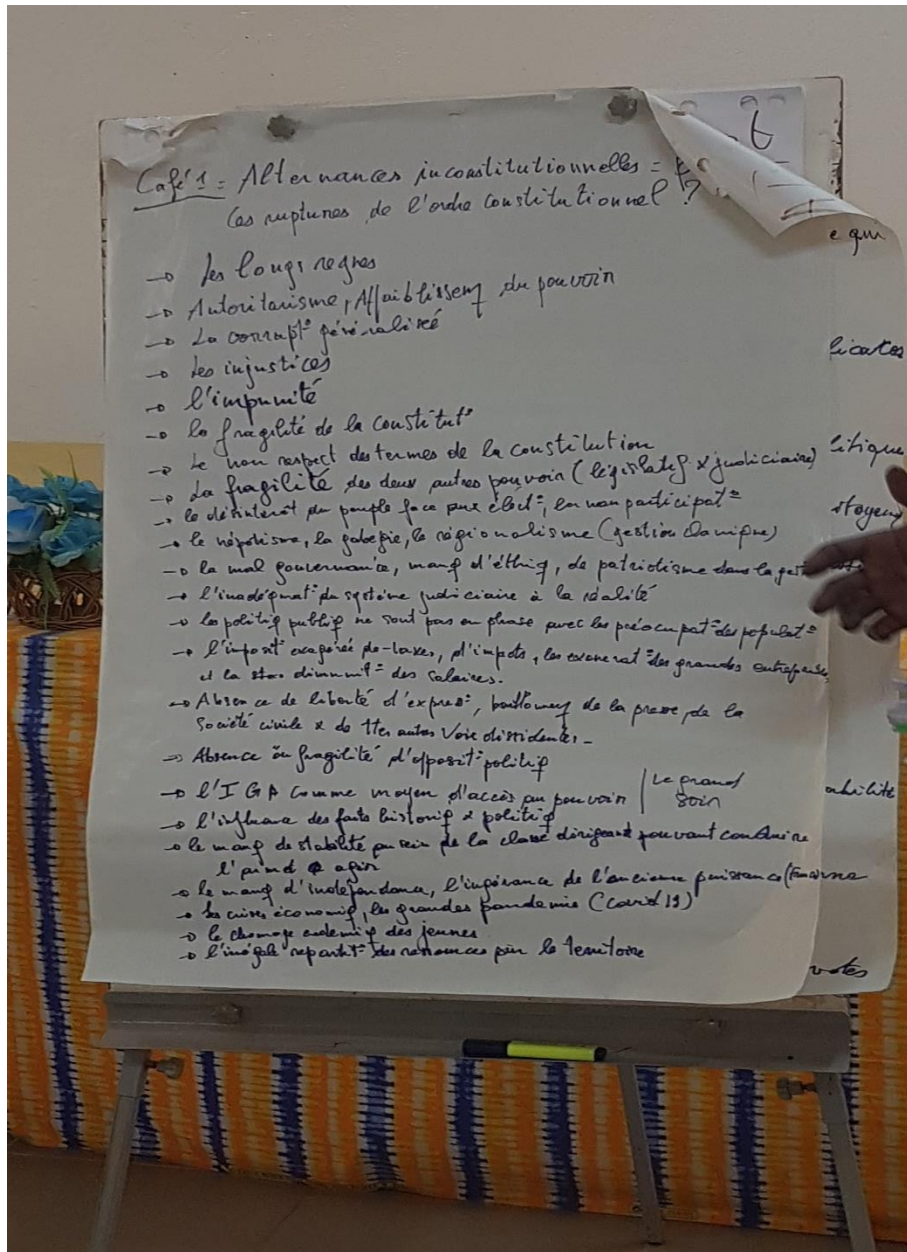 Café 1 = Alternances inconstitutionnelles =
Ces ruptures de l'ordre constitutionnel ?
→ Les longs regnes
→ Autoritarisme, Affaiblissemt du pouvoir
→ La corrupt° généralisée
→ Les injustices
→ l'impunité
→ la fragilité de la constitut°
→ Le non respect des termes de la constitution
→ La fragilité des deux autres pouvoir (législatif & judiciaire)
→ le désintérêt du peuple face aux élect°, la non participat°
→ le népotisme, la gabegie, le régionalisme (gestion clanique)
→ la mal gouvernance, manq d'éthiq, de patriotisme dans la gest
→ l'inadéquat° du système judiciaire à la réalité
→ les politiq publiq ne sont pas en phase avec les préocupat° des populat°
→ l'imposit° exagérée de taxes, d'impots, les exonerat° des grandes entreprises
et la diminut° des salaires.
→ Absence de liberté d'express°, de la presse, de la
Société civile & de ttes autres Voie dissidentes -
→ Absence ou fragilité d'opposit° politiq
→ l'IGA comme moyen d'accès au pouvoir | Le grand
Soin
→ l'influence des faits historiq & politiq
→ le manq de stabilité au sein de la classe dirigeant pouvant conduire
l'armé à agir
→ le manq d'independance, l'ingérance de l'ancienne puissance
→ les crises économiq, les grandes pandemie (Covid 19)
→ le chomage endemiq des jeunes
→ l'inégale repartit° des ressources sur le territoire
6
e qui
licates
litique
itoyens
abilité
votes